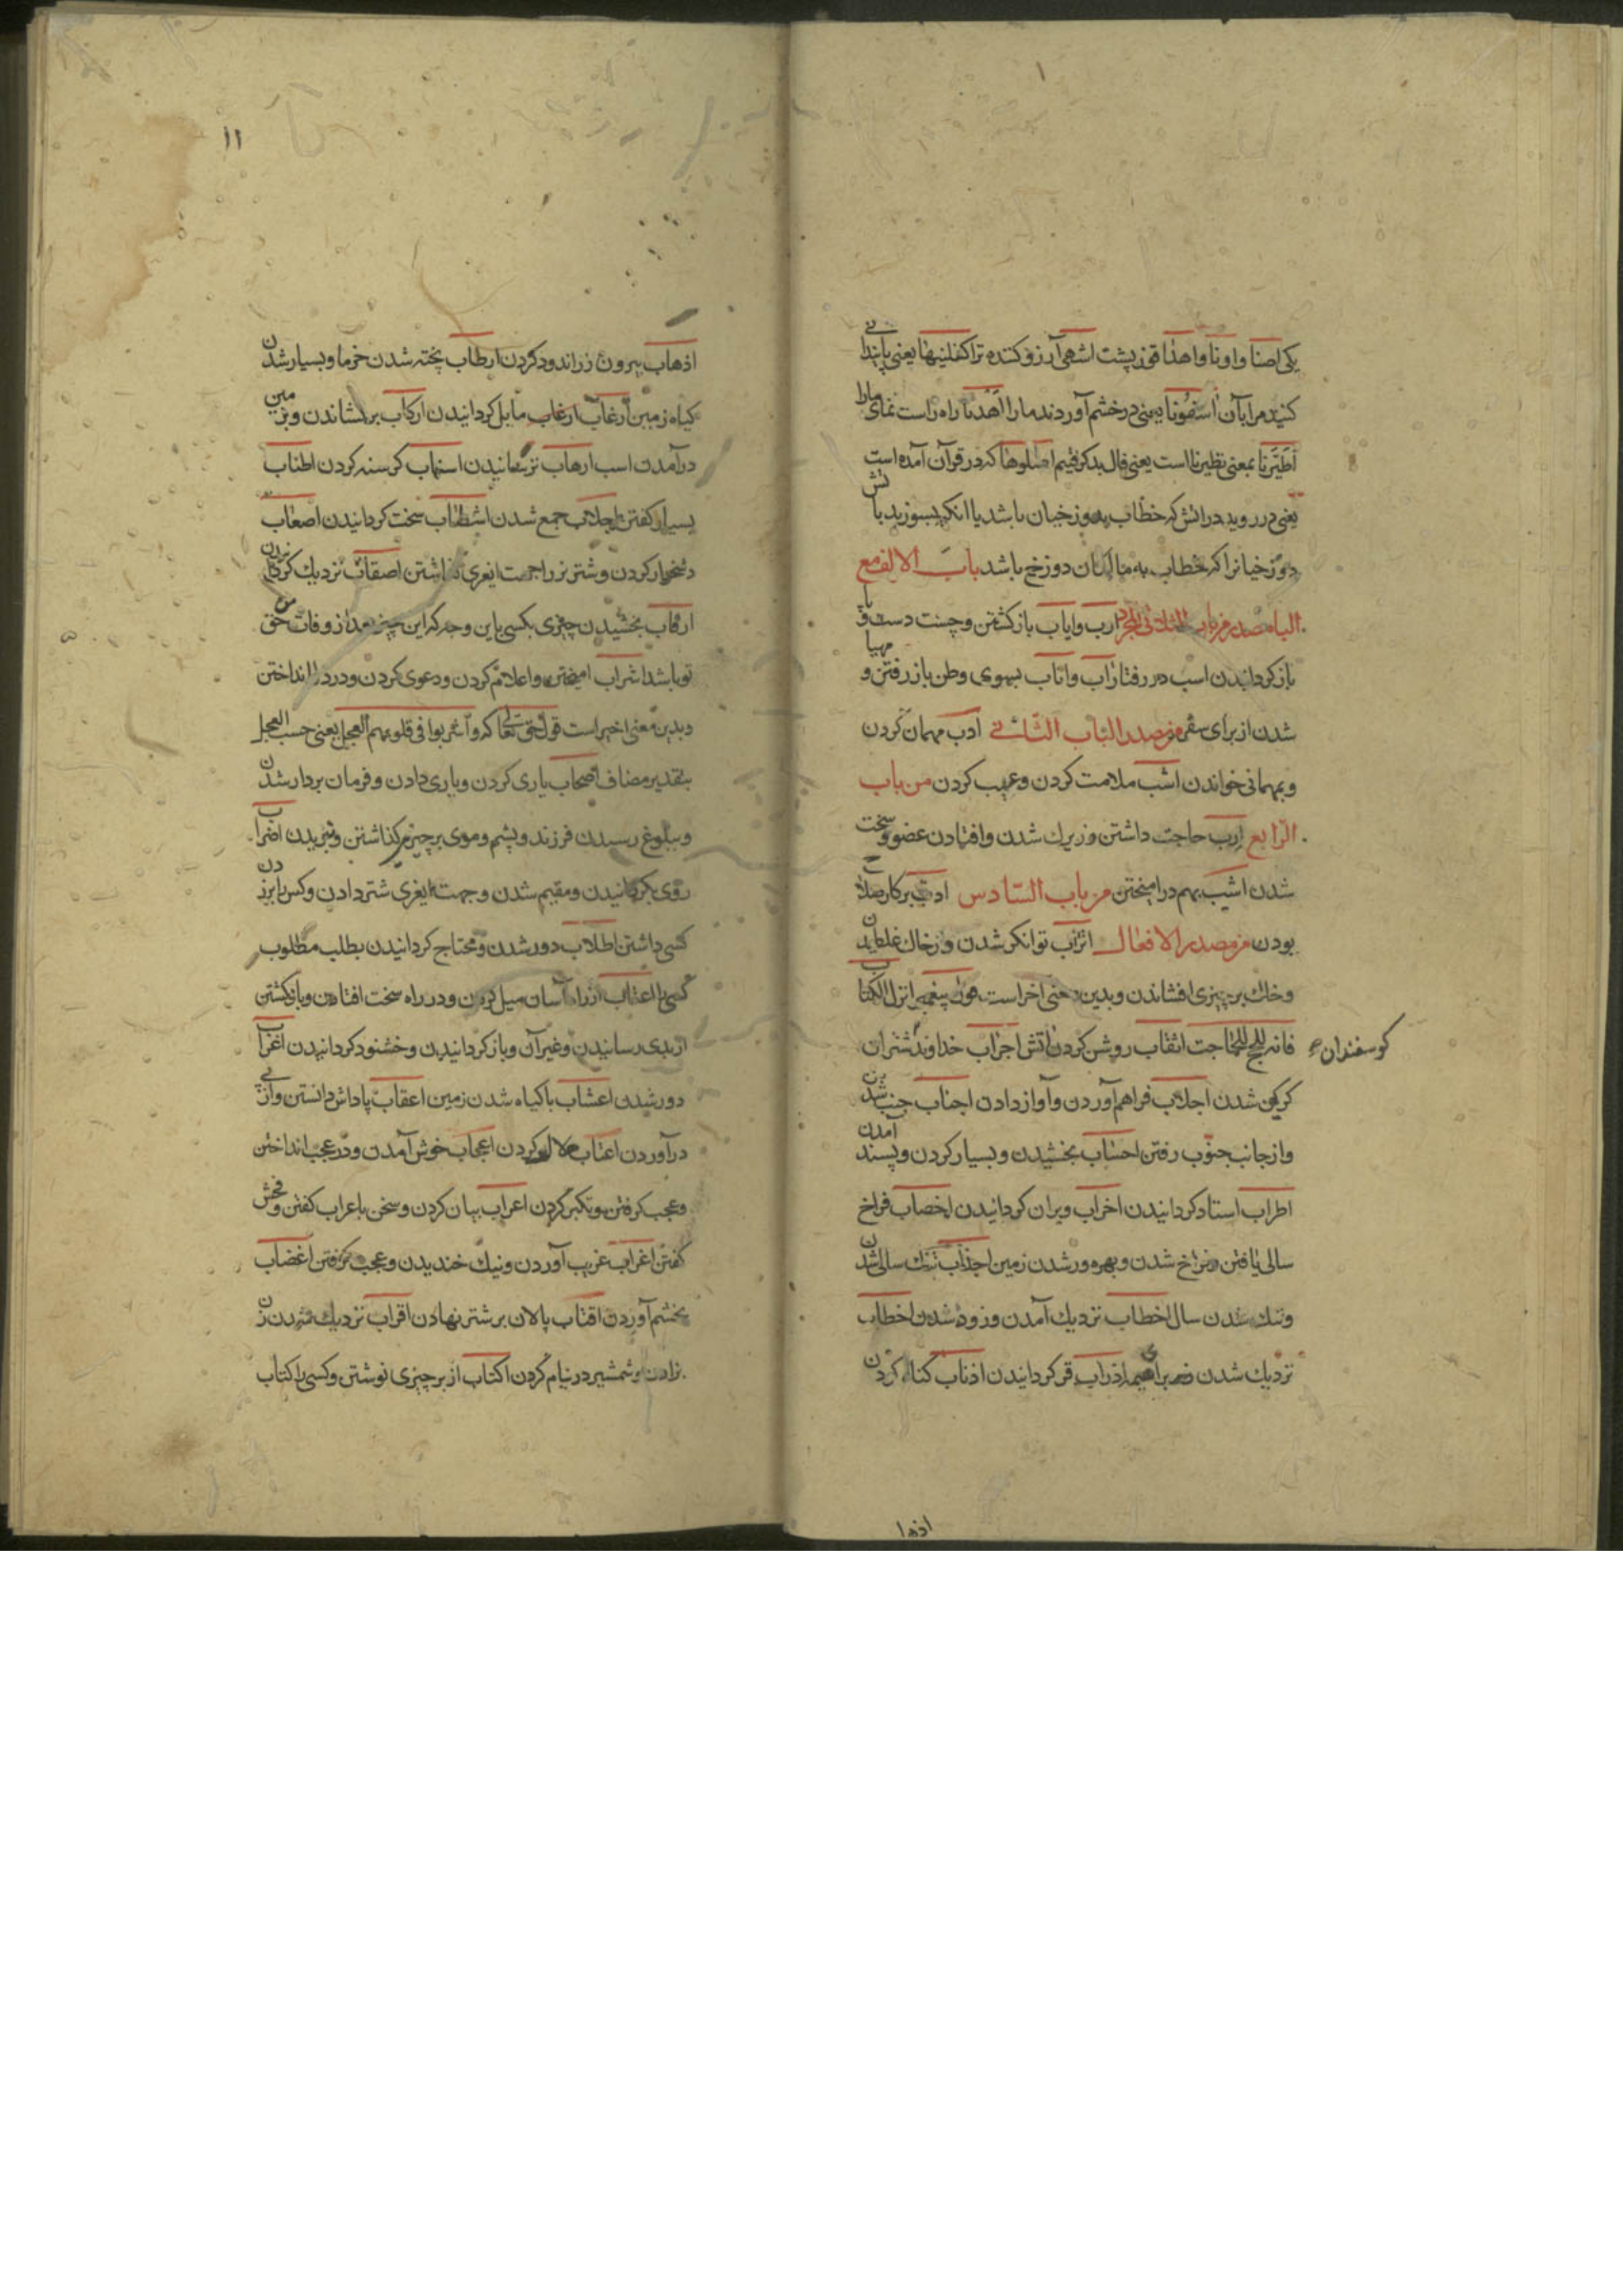 یکی اصنا و اونا و اهذا قوز پشت اشهی آرزو کننده تر اکفلنیها یعنی پایندانی
کنید مرا بآن اسفونا یعنی در خشم آوردند ما را اهدنا راه راست نمای ما را
اطیرنا بمعنی تطیرنا است یعنی فال بد گرفتیم اصلوها که در قرآن آمده است
یعنی در روید در آتش که خطاب بدوزخیان باشد یا آنکه بسوزید با تش
دوزخیانرا که خطاب به مالکان دوزخ باشد باب الالف مع
الباء مصدر من باب الثلاثی المجرد ارب و ایاب باز گشتن و چست دست و پا
باز کردانیدن اسب در رفتار اب و اباب بسوی وطن باز رفتن و مهیا
شدن از برای سفر من مصدر الباب الثانی ادب مهمان کردن
و بمهمانی خواندن اشب ملامت کردن و عیب کردن من باب
الرابع ارب حاجت داشتن و زیرک شدن و افتادن عضو و سخت
شدن اشب بهم در آمیختن من باب السادس ادب بر کار صلا
بودن من مصدر الافعال اتراب توانکر شدن و در خاک غلطیدن
و خاک بر چیزی افشاندن و بدین معنی اخر است قول پیغمبر اترل الکتاب
فانه انجح للحاجت اثقاب روشن کردن آتش اجراب خداوند شتران
کوسفندان
کرکین شدن اجلاب فراهم آوردن و آواز دادن اجناب جنب شدن
و از جانب جنوب رفتن احساب بخشیدن و بسیار کردن و پسند آمدن
اطراب استاد کردانیدن اخراب ویران کردانیدن اخصاب فراخ
سالی یافتن و فراخ شدن و بهره ور شدن زمین اجداب تنک سالی شدن
و تنک شدن سال اخطاب نزدیک آمدن و زود شدن اخطاب
نزدیک شدن اذراب قر کردانیدن اذناب کناه کردن
اذها
۱۱
اذهاب بیرون زر اندود کردن ارطاب پخته شدن خرما و بسیار شدن
کیاه زمین ارغاب ارغاب مایل کردانیدن ارکاب بر نشاندن و بزمین
در آمدن اسب ارهاب ترسانیدن اسغاب کرسنه کردن اطناب
بسیار کفتن اجلاب جمع شدن اشطاب سخت کردانیدن اصعاب
دشخوار کردن و شتر نر را جهت ایغری کذاشتن اصقاب نزدیک کردن
ارقاب بخشیدن چیزی بکسی باین وجه که این چیز بعد از وفات من حق
تو باشد اشراب آمیختن و اعلام کردن و دعوی کردن و در دل انداختن
و بدین معنی اخیر است قول حق تعالی که و اشربوا فی قلوبهم العجل یعنی حسب العجل
بتقدیر مضاف اصحاب یاری کردن و یاری دادن و فرمان بردار شدن
و ببلوغ رسیدن فرزند و پشم و موی بر چیزی کذاشتن و نبریدن اضراب
روی بکردانیدن و مقیم شدن و جهت ایغری شتر دادن و کس را بر زدن
کسی داشتن اطلاب دور شدن و محتاج کردانیدن بطلب مطلوب
کسی را اعتاب از راه آسان میل کردن و در راه سخت افتادن و باز کشتن
از بدی رسانیدن و غیر آن و باز کردانیدن و خشنود کردانیدن اغراب
دور شدن اعشاب با کیاه شدن زمین اعقاب پاداش دانستن و از پی
در آوردن اعتاب ملال کردن اعجاب خوش آمدن و در عجب انداختن
و عجب کرفتن و تکبر کردن اعراب بیان کردن و سخن باعراب کفتن و فحش
کفتن اغراب غریب آوردن و نیک خندیدن و عجب کرفتن اغضاب
بخشم آوردن اقتاب پالان بر شتر نهادن اقراب نزدیک شدن زن
بزادن و شمشیر در نیام کردن اکتاب از بر چیزی نوشتن و کسی را کتاب